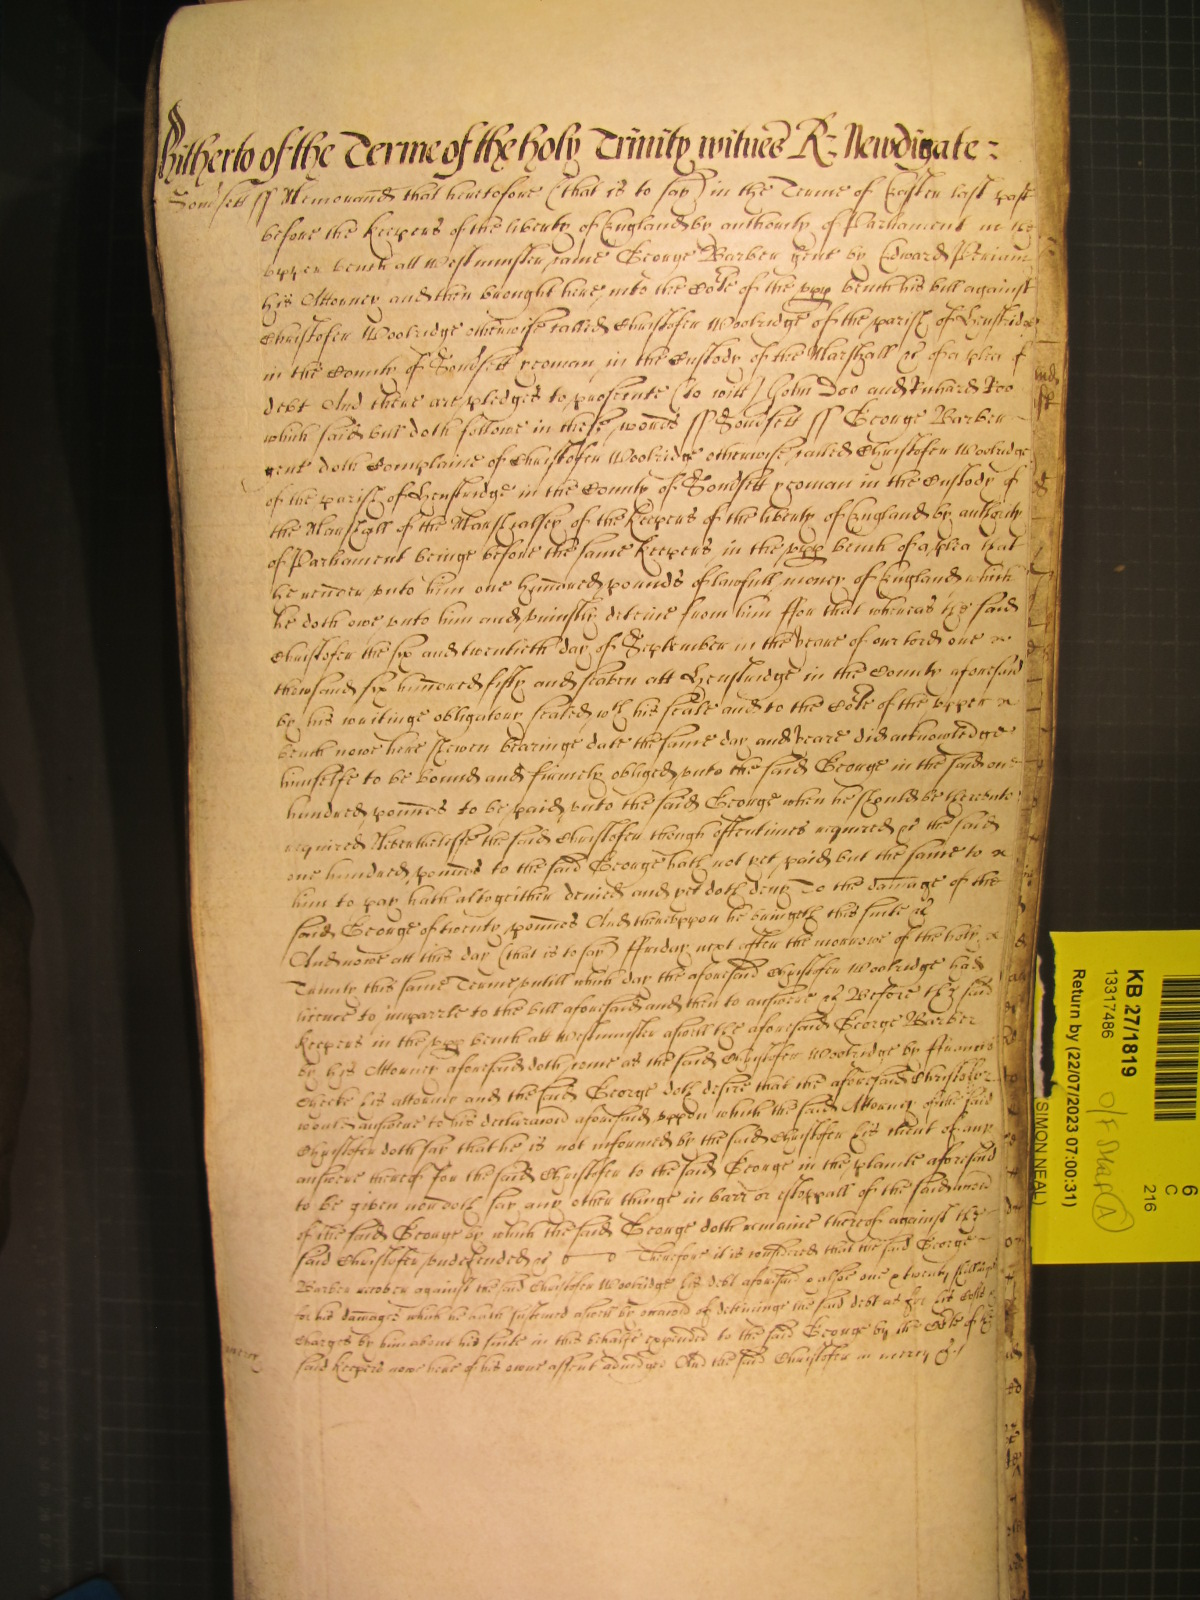 Hitherto of the Terme of the holy Trinity witnes R: Newdigate:
Somsett ss Memorand that heretofore (that is to say) in the Terme of Easter last past
before the keepers of the liberty of England by authority of Parliament in the
upper bench att Westminster came George Barber gent by Edward Periam
his Attorney and then brought here into the Cote of the upp bench his bill against
Christofer Woolridge otherwise called Christofer Woolridge of the parish of Henstridge
in the County of Somsett yeoman in the Custody of the Marshall &c of a plea of
debt And there are pledges to prosecute (to witt) John Doo and Richard Roo
which said bill doth followe in these words ss Somsett ss George Barber
gent doth Complaine of Christofer Woolridge otherwise called Christofer Woolridge
of the parish of Henstridge in the County of Somsett yeoman in the Custody of
the Marshall of the Marshalsey of the keepers of the liberty of England by authority
of Parliament beinge before the same keepers in the upp bench of a plea that
he render unto him one hundred pounds of lawfull money of England which
he doth owe unto him and uniustly deteine from him ffor that whereas the said
Christofer the six and twentieth day of September in the yeare of our lord one
thowsand six hundred fifty and seaven att Henstridge in the County aforesaid
by his writinge obligatory sealed wth his seale and to the Cote of the upper
bench nowe here shewen bearinge date the same day and yeare did acknowledge
himselfe to be bound and firmely obliged unto the said George in the said one
hundred pounds to be paid unto the said George when he should be thereunto
required Neverthelesse the said Christofer though oftentimes required &c the said
one hundred pounds to the said George hath not yet paid but the same to
him to pay hath altogeither denied and yet doth deny To the damage of the
said George of twenty pounds And thereuppon he bringeth this suite &c
And nowe att this day (that is to say) ffriday next after the morrowe of the holy
Trinity this same Terme untill which day the aforesaid Christofer Woolridge had
licence to imparle to the bill aforesaid and then to answere &c Before the said
keepers in the upp bench att Westminster aswell the aforesaid George Barber
by his Attorney aforesaid doth come as the said Christofer Woolridge by ffrancis
his attorney and the said George doth desire that the aforesaid Christofer
would answere to his declaracon aforesaid uppon which the said Attorney of the said
Christofer doth say that he is not informed by the said Christofer his client of any
answere thereof for the said Christofer to the said George in the plainte aforesaid
to be given nor doth say any other thinge in barr or estoppall of the said accon
of the said George by which the said George doth remaine thereof against the
said Christofer undefended &c Therefore it is considered that the said George
Barber recover against the said Christofer Woolridge his debt aforesaid & alsoe one & twenty shillings
for his damages which he hath susteined aswell by occacon of deteininge the said debt as for his Costs &
Charges by him about his suite in this behalfe expended to the said George by the Cote of the
mercy said keepers nowe here of his owne assent adiudged And the said Christofer in mercy &c
KB 27/1819
13317486
Return by (22/07/2023 07:00:31)
(SIMON NEAL)
6
C
216